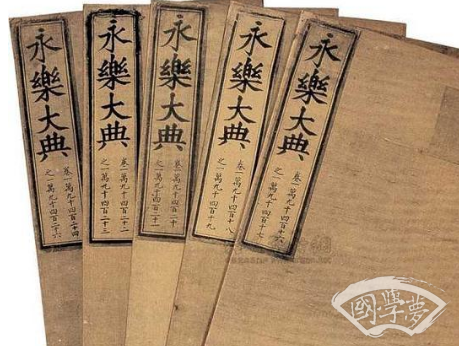 永樂大典
卷一萬九千四百二十四
之一萬九千四百二十六
永樂大典
卷一萬九千四百二十二
之一萬九千四百二十三
永樂大典
卷一萬九千四百二十
之一萬九千四百二十一
永樂大典
卷一萬九千四百十八
之一萬九千四百十九
永樂大典
卷一萬九千四百十六
之一萬九千四百十七
國學夢